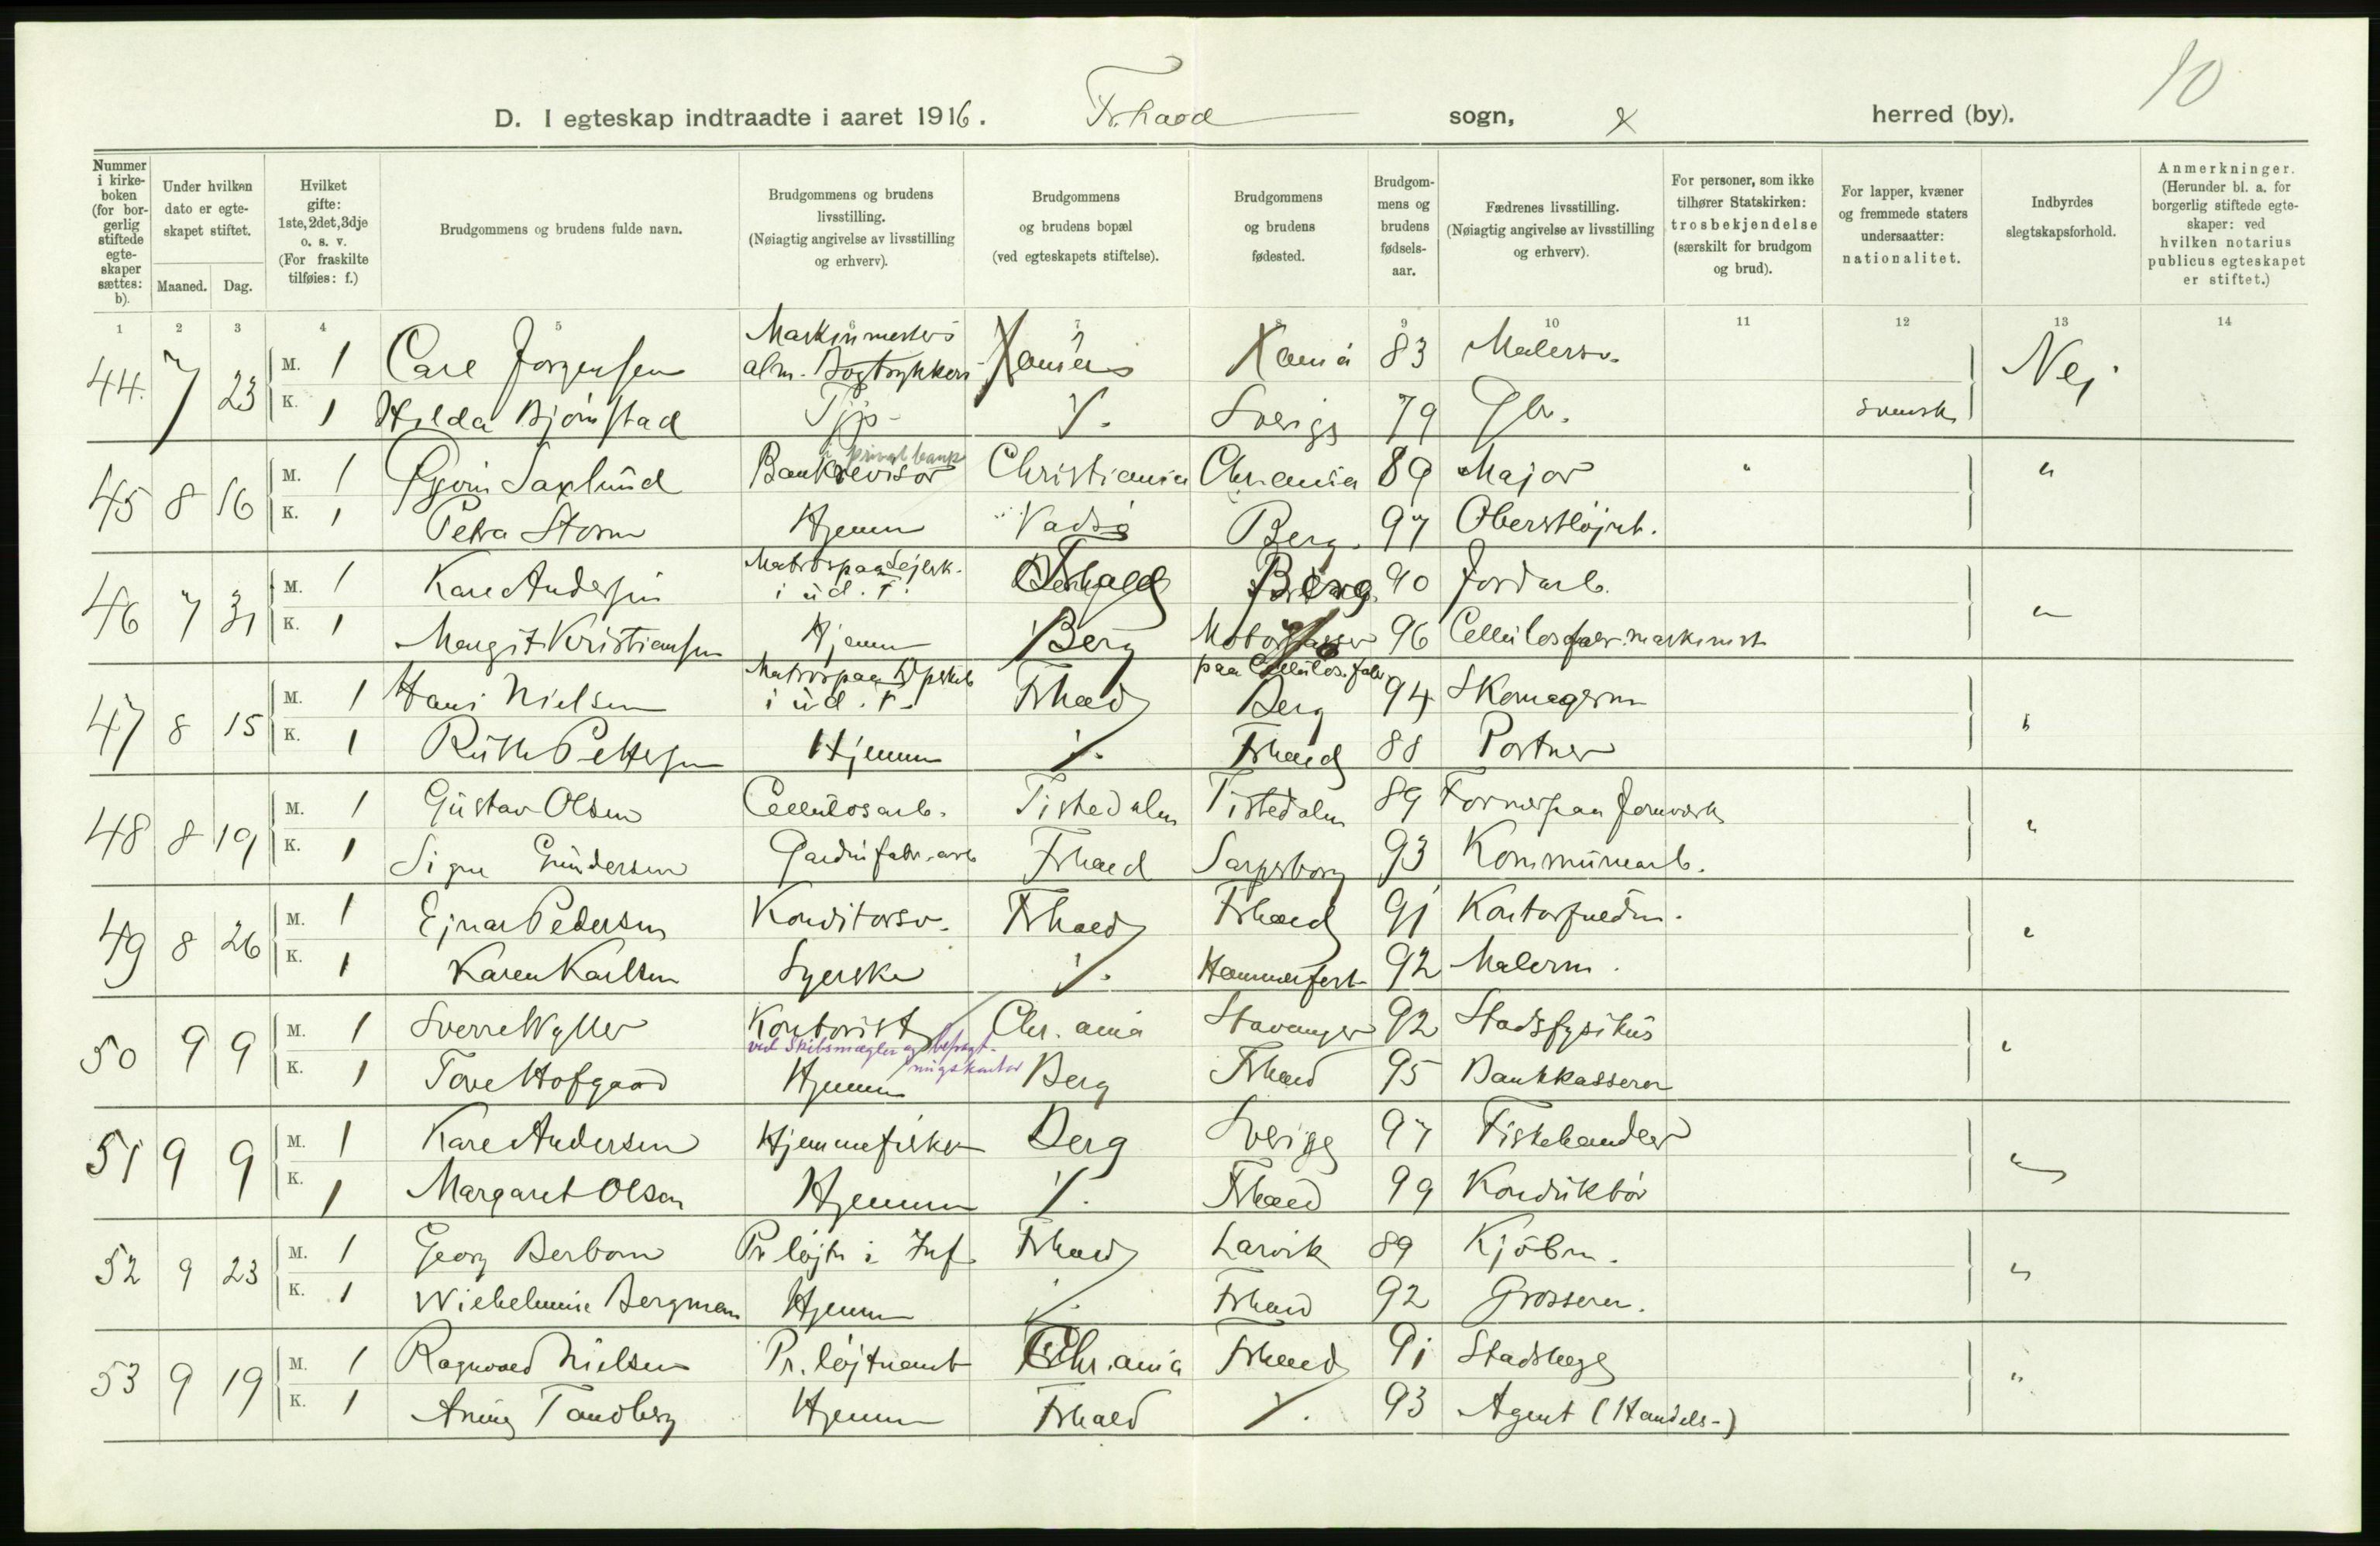 10
D. I egteskap indtraadte i aaret 1916. Fr.hald sogn, herred (by).
Nummer i kirke-boken (for bor-gerlig stiftede egte-skaper sættes: b).
Under hvilken dato er egte-skapet stiftet.
Maaned. Dag.
Hvilket gifte: 1ste, 2det, 3dje o. s. v. (For fraskilte tilføies: f.)
Brudgommens og brudens fulde navn.
Brudgommens og brudens livsstilling. (Nøiagtig angivelse av livsstilling og erhverv).
Brudgommens og brudens bopæl (ved egteskapets stiftelse).
Brudgommens og brudens fødested.
Brudgom-mens og brudens fødsels-aar.
Fædrenes livsstilling. (Nøiagtig angivelse av livsstilling og erhverv).
For personer, som ikke tilhører Statskirken: trosbekjendelse (særskilt for brudgom og brud).
For lapper, kvæner og fremmede staters undersaatter: nationalitet.
Indbyrdes slegtskapsforhold.
Anmerkninger. (Herunder bl. a. for borgerlig stiftede egte-skaper: ved hvilken notarius publicus egteskapet er stiftet.)
1 2 3 4 5 6 7 8 9 10 11 12 13 14
44. 7 23 M. 1 Carl Jorgensen Maskinmester i alm. Bogtrykkeri Xania Xania 83 Malersv. Nej
K. 1 Hilda Bjørnstad Tjp. ./. Sverige 79 Gbr. svensk
45 8 16 M. 1 Saxlund Bankrevisor i privatbank Christiania Chr.ania 89 Major "
K. 1 Petra Storm Hjemme Vadsø Berg. 97 Oberstløjtn.
46 7 31 M. 1 Kare Andersen Matros paa Sejlsk. i ud. F. Fr.hald Berg. 90 Jordarb. "
K. 1 Margit Kristiansen Hjemme Berg 96 Cellulosefabr. maskinist
47 8 15 M. 1 Hans Nielsen Matros paa Dpskib i ud. F. Frhald Berg 94 Skomagerm "
K. 1 Ruth Pettersen Hjemme ./. Frhald 88 Portner
48 8 19 M. 1 Gustav Olsen Cellulosarb. Tistedalen Tistedalen 89 Former paa Jernverk "
K. 1 Signe Gundersen Gardinfabr.arb Frhald Sarpsborg 93 Kommunearb.
49 8 26 M. 1 Ejnar Pedersen Konditorsv. Frhald Frhald 91 Kontorfuldm. "
K. 1 Karen Karlsen Syerske ./. Hammerfest 92 Malerm.
50 9 9 M. 1 Sverre Wyller Kontorist ved Skibsmægler og befragt-ningskontor Chr.ania Stavanger 92 Stadsfysikus "
K. 1 Tove Hofgaard Hjemme Berg Frhald 95 Bankkasserer
51 9 9 M. 1 Kare Andersen Hjemmefisker Berg Sverige 97 Fiskehandler "
K. 1 Margaret Olsen Hjemme ./. Frhald 99 Konduktør
52 9 23 M. 1 Georg Berbom Pr. løjtn i Inf. Frhald Larvik 89 Kjøbm. "
K. 1 Wilhelmine Bergman Hjemme ./. Frhald 92 Grosserer.
53 9 19 M. 1 Ragnvald Nielsen Pr. løjtnant Chr.ania Frhald 91 Stadslæge "
K. 1 Tandberg Hjemme Frhald ./. 93 Agent (Handels-)